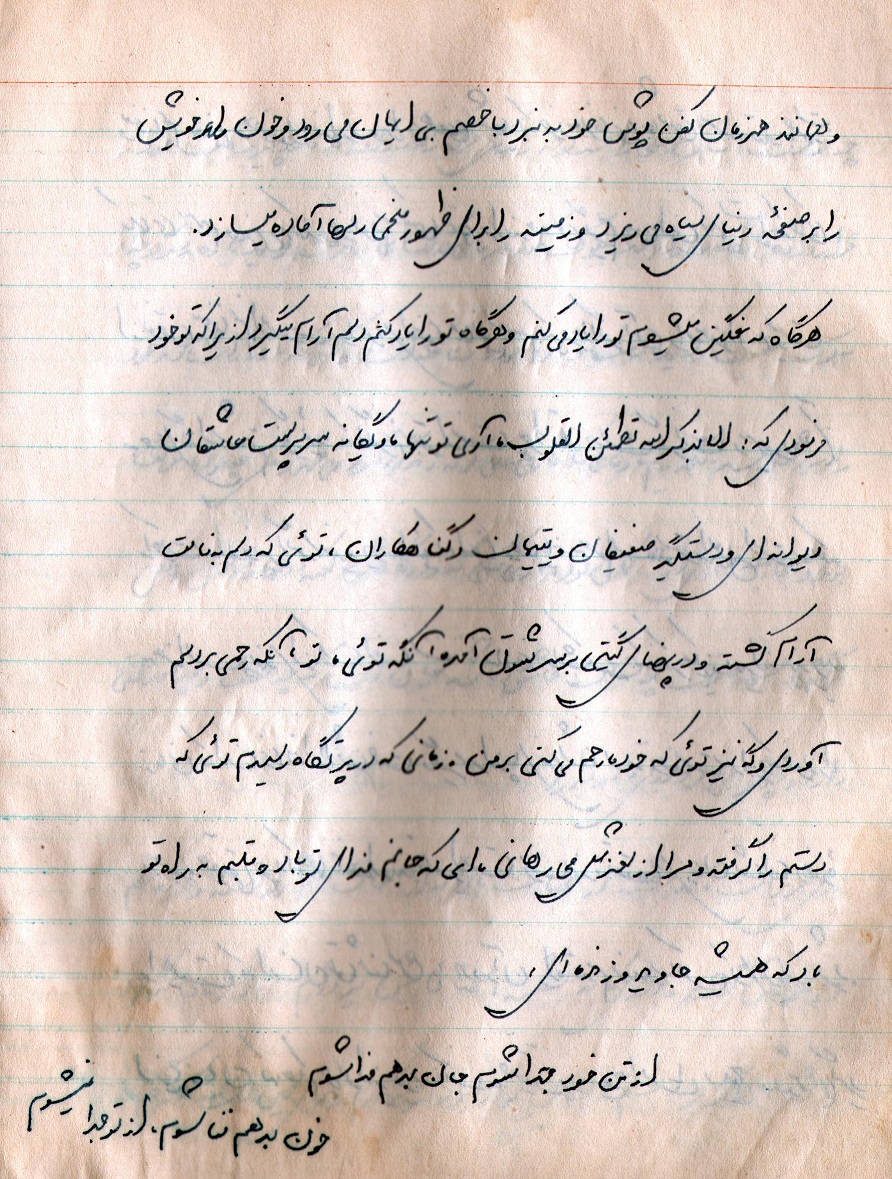 و همانند همرزمان کفن پوش خود به نبرد با خصم بی ایمان می رود و خون راهد خویش
را بر صفحهٔ دنیای سیاه می ریزد و زمینه را برای ظهور منجی رسها آماده میسازد.
هرگاه که غمگین میشوم تو را یاد می کنم و هرگاه تو را یاد کنم دلم آرام میگیرد از یرا که تو خود
فرمودی که: الا بذکر الله تطمئن القلوب، آری تو تنها و یگانه سرپرست عاشقان
دیوانه ای و دستگیر ضعیفان و یتیمان و گناهکاران، توئی که دلم به نامت
آرام گشته و در پهنای گیتی بر سر شوق آمده آنگه توئی، تو، آنکه رحمی بر دلم
آوردی وگه نیز توئی که خود رحم می کنی بر من. زمانی که در پرتگاه رسیدم توئی که
دستم را گرفته و مرا از لغزش می رهانی، ای که جانم فدای تو باد و قلبم به راه تو
باد که همیشه جاوید و زنده ای،
از تن خود جدا شوم جان بدهم فدا شوم
خون بدهم فنا شوم، از تو جدا نمیشوم